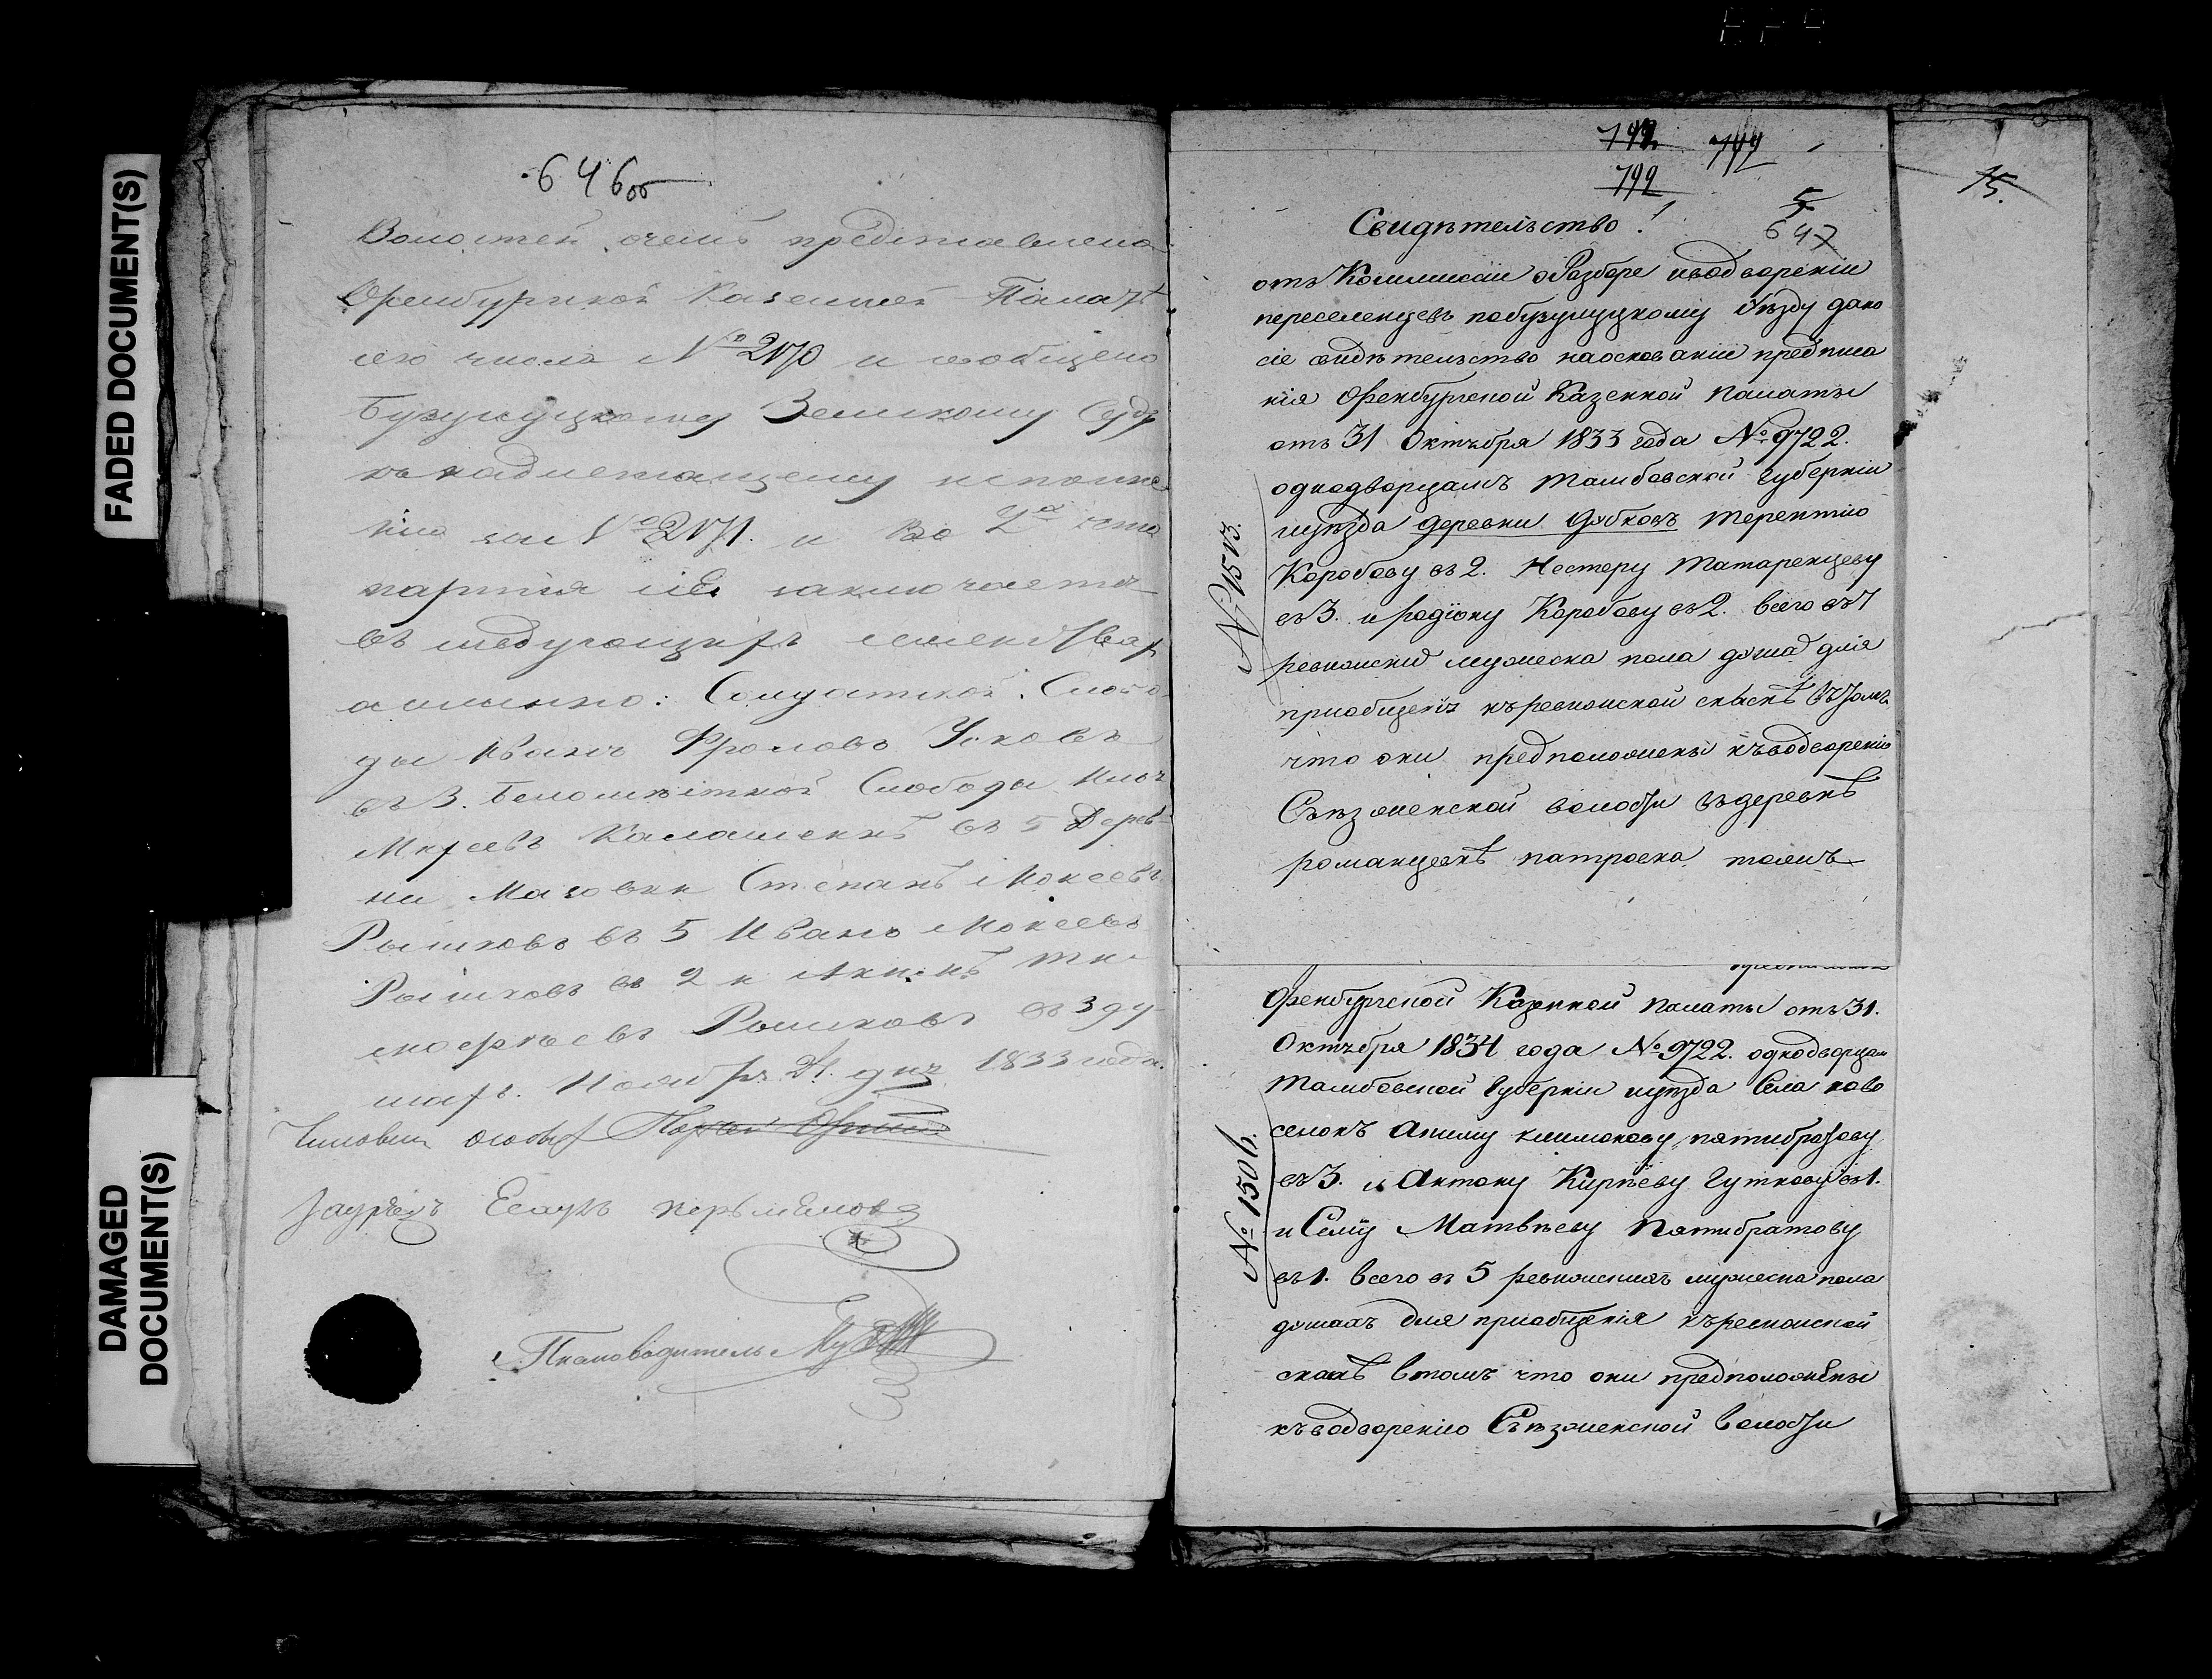 FADED DOCUMENT(S)
DAMAGED
DOCUMENT(S)
646об
Волостей, о чемъ представлено
Оренбургской Казенной Палатѣ
сего числа № 2170 и сообщено
Бузулуцкому Земскому Суду
къ надлежащему исполне
нию за № 2171. и Во 2й
партия сiя заключаетъ
въ следующихъ семействах
а имянно: Солдатской Слобо
ды Иванъ Фроловъ Усковъ
въ 3. Беломѣстной Слободы
Калашекнъ въ 5 Дерев
ни Мазовки Степанъ Мокеевъ
Рышковъ въ 5 Иванъ Мокеевъ
Рышковъ въ 2 и Акимъ Ти
мофѣевъ Рышковъ въ 3 ду
шах. Ноября 21 дня 1833 года.
Чиновник особых
Заурядъ Есаулъ
Писмоводитель
742. 744
792
5
647
Свидѣтельство!
отъ Коммисiи о Разборе и водворенiи
переселенцевъ по бузулуцкому Уѣзду дано
сiе свидѣтельство на основанiи предписа
нiя Оренбургской Казенной палаты
отъ 31 Октъбря 1833 года № 9722.
однодворцамъ тамбовской губернiи
и уѣзда деревни Дубковъ терентiю
Коробову въ 2. Нестеру татаренцеву
въ 3. и родiону Коробову въ 2. всего въ 7
ревизских мужеска пола душах для
приобщенiя къ ревизской скаскѣ въ томъ
что они предположены къ водворенiю
Съѣзженской волости въ деревнѣ
романцевкѣ патровка тожъ
№ 1513.
Оренбургской Казенной палаты отъ 31.
Октъбря 1834 года № 9722. однодворцам
тамбовской губернiи и уѣзда Села ново
селокъ Акиму климокову пятибратову
въ 3. и Антону Кирѣеву Гуткову въ 1.
и Семiу Матвѣеву Пятибратову
въ 1. всего въ 5 ревизскихъ мужеска пола
душахъ для приобщенiя къ ревизской
скаскѣ в томъ что они предположены
къ водворенiю Съѣзженской волости
15.